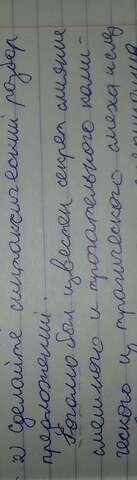 2) Сделайте синтаксический разбор
предложений.
Гоголю был известен секрет слияния
смешного и трогательного коми-
ческого и трагического смеха и слёз